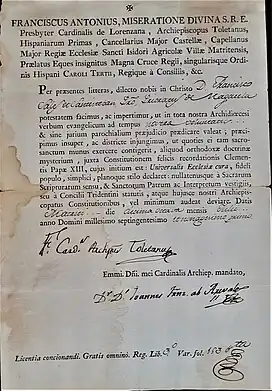 FRANCISCUS ANTONIUS, MISERATIONE DIVINA S. R. E.
Presbyter Cardinalis de Lorenzana, Archiepiscopus Toletanus,
Hispaniarum Primas, Cancellarius Major Castellæ, Capellanus
Major Regiæ Ecclesiæ Sancti Isidori Agricolæ Villæ Matritensis,
Prælatus Eques insignitus Magna Cruce Regii, singularisque Ordi-
nis Hispani CAROLI TERTII, Regique à Consiliis, &c.
Per præsentes litteras, dilecto nobis in Christo D. Francisco
de
potestatem facimus, ac impertimur, ut in tota nostra Archidiœcesi
verbum evangelicum ad tempus
& sine jurium parochialium præjudicio prædicare valeat; præci-
pimus insuper, ac districte injungimus, ut quoties et tam sacro-
sanctum munus exercere contigerit, aliquid orthodoxæ doctrinæ
mysterium, juxta Constitutionem felicis recordationis Clemen-
tis Papæ XIII, cujus initium est: Universalis Ecclesiæ cura, fideli
populo, simplici, planoque stilo declaret: nullatenusque à Sacrarum
Scripturarum sensu, & Sanctorum Patrum ac Interpretum vestigiis,
seu à Concilii Tridentini statutis, atque hujusce nostri Archiepis-
copatus Constitutionibus, vel minimum audeat deviare. Datis
die mensis
anno Domini millesimo septingentesimo nonagesimo primo
F. Card. Archiepus Toletanus
Emmi. Dñi. mei Cardinalis Archiep. mandato,
Dr. Dn. Joannes ab
Licentia concionandi. Gratis omnino. Reg. Lib. 3º Var. fol. 153